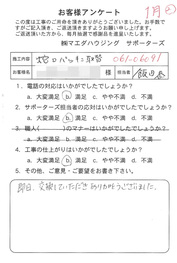 1月
お客様アンケート
この度は工事のご用命を頂きありがとうございました。お手数で
すがご記入頂き、ご返送頂きますようお願い申し上げます。
ご返送頂いた方から、毎月抽選で感謝品を進呈致します。
㈱マエダハウジング サポーターズ
施工内容
蛇口パッキン取替
061-06091
お客様名
担当者
飯田
1. 電話の対応はいかがでしたでしょうか?
a. 大変満足 b. 満足 c. やや不満 d. 不満
2. サポーターズ担当者の対応はいかがでしたでしょうか?
a. 大変満足 b. 満足 c. やや不満 d. 不満
3. 職人( )のマナーはいかがでしたでしょうか?
a. 大変満足 b. 満足 c. やや不満 d. 不満
4. 工事の仕上がりはいかがでしたでしょうか?
a. 大変満足 b. 満足 c. やや不満 d. 不満
5. その他、ご意見・ご要望をお書き下さい。
即日、交換していただきありがとうございました。